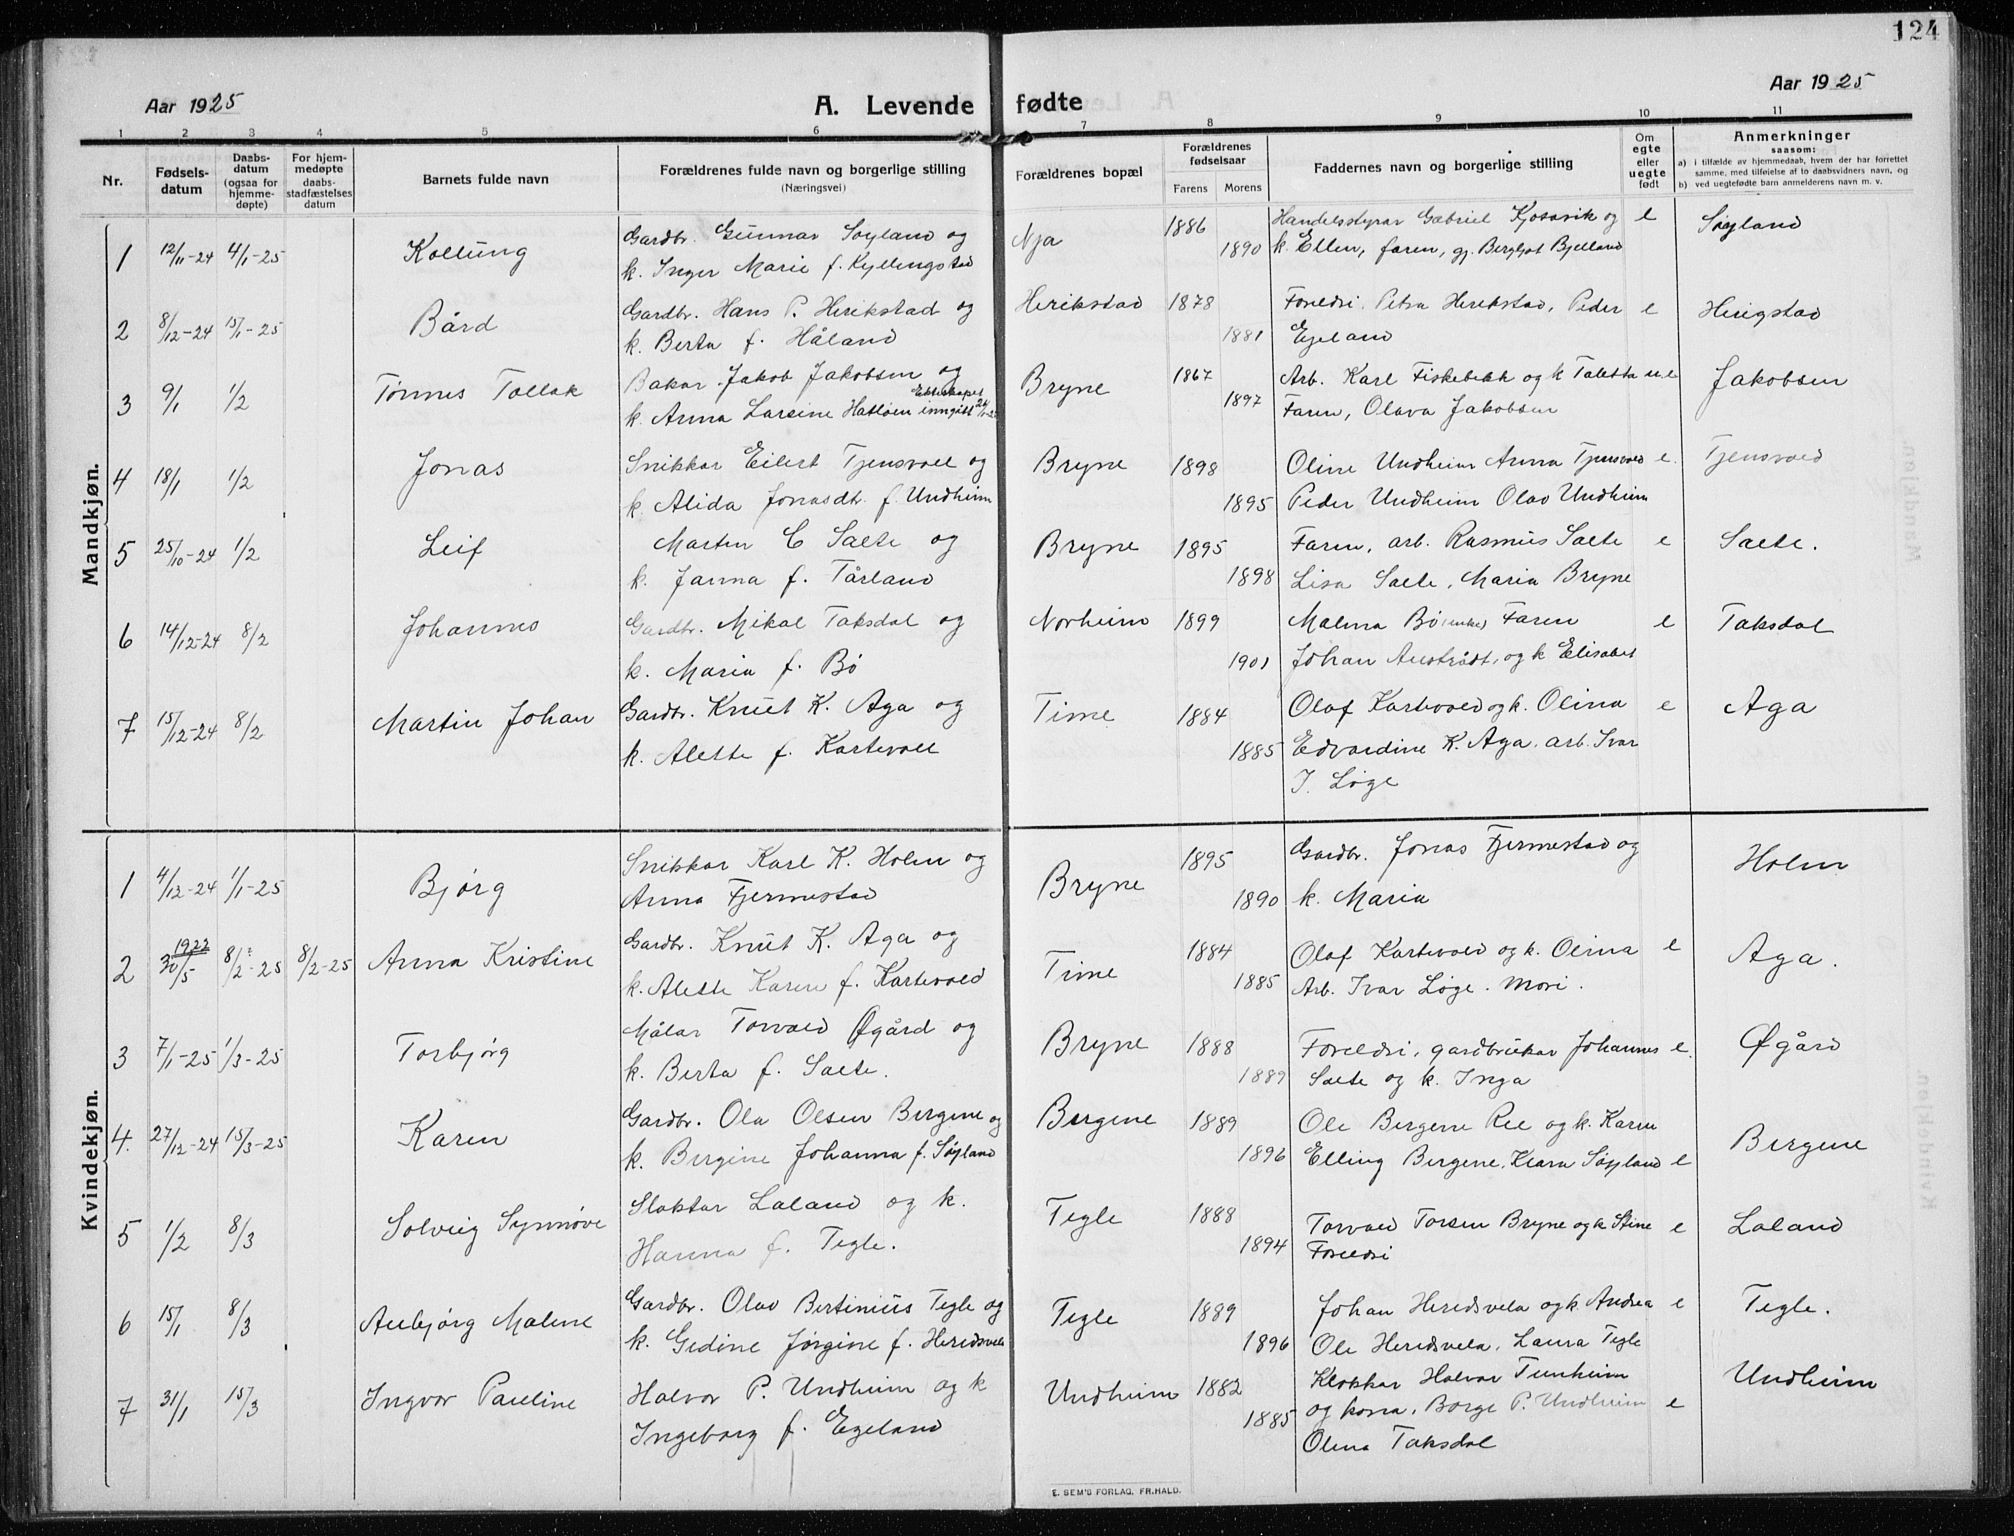 124
Aar 1925
A. Levende fødte
Aar 1925
1 2 3 4 5 6 7 8 9 10 11
Nr.
Fødsels-
datum
Daabs-
datum
(ogsaa for
hjemme-
døpte)
For hjem-
medøpte
daabs-
stadfæstelses
datum
Barnets fulde navn
Forældrenes fulde navn og borgerlige stilling
(Næringsvei)
Forældrenes bopæl
Forældrenes
fødselsaar
Farens Morens
Faddernes navn og borgerlige stilling
Om
egte
eller
uegte
født
Anmerkninger
saasom:
a) i tilfælde av hjemmedaab, hvem der har forrettet
samme, med tilføielse af to daabsvidners navn, og
b) ved uegtefødte barn anmelderens navn m. v.
Mandkjøn.
1 12/11-24 4/1-25 Kollung Gardbr. Gunnar Søyland og Nja 1886 Handelsstyrar Gabriel Kjosavik og e Søyland
k. Inger Marie f. Kyllingstad 1890 k. Ellen, faren, gj. Bergljot Bjelland
2 8/12-24 15/1-25 Bård Gardbr. Hans P. Herikstad og Herikstad 1878 Foreldri, Petra Herikstad, Peder e Herigstad
k. Berta f. Håland 1881 Egeland
3 9/1 1/2 Tønnes Tollak Bakar Jakob Jakobsen og Bryne 1867 Arb. Karl Fiskebekk og k Taletta u.e Jakobsen
k. Anna Larsine Hatløen Ekteskapet inngått 24/1-25 1897 Faren, Olava Jakobsen
4 18/1 1/2 Jonas Snikkar Eilert Tjensvoll og Bryne 1898 Oline Undheim Anna Tjensvold e. Tjensvold
k. Alida Jonasdt. f. Undheim 1895 Peder Undheim Olav Undheim
5 25/10-24 1/2 Leif Marten C Salte og Bryne 1895 Faren, arb. Rasmus Salte e Salte.
k. Janna f. Tårland 1898 Lisa Salte, Maria Bryne
6 14/12-24 8/2 Johannes Gardbr. Mikal Taksdal og Norheim 1899 Malena Bø (enke) Faren e Taksdal
k. Maria f. Bø 1901 Johan Austrådt, og k Elisabet
7 15/12-24 8/2 Martin Johan Gardbr. Knut K. Aga og Time 1884 Olaf Kartevold og k. Olina e Aga
k. Alette f. Kartevoll 1885 Edvardine K. Aga. arb. Ivar
I. Løge
Kvindekjøn.
1 4/12-24 1/1-25 Bjørg Snikkar Karl K. Holm og Bryne 1895 Gardbr. Jonas Fjermestad og Holm
Anna Fjermestad 1890 k. Maria
2 1922 30/5 8/2-25 8/2-25 Anna Kristine Gardbr. Knut K. Aga og Time 1884 Olaf Kartevold og k. Olina e Aga.
k. Alette Karen f. Kartevold 1885 Arb. Ivar Løge. Mori.
3 7/1-25 1/3-25 Torbjørg Målar Torvald Øgård og Bryne 1888 Foreldri, gardbrukar Johannes e. Øgård
k. Berta f. Salte. 1889 Salte og k. Inga
4. 27/12-24 15/3-25 Karen Gardbr. Ola Olsen Bergene og Bergene 1889 Ole Bergene Ree og k. Karen Bergene
k. Bergine Johanna f. Søyland 1896 Elling Bergene, Klara Søyland e
5 1/2 8/3 Solveig Synnøve Slaktar Laland og k. Tegle 1888 Torvald Torsen Bryne og k Stine e Laland
Hanna f. Tegle. 1894 Foreldri
6 15/1 8/3 Aubjørg Malene Gardbr. Olav Bertinius Tegle og Tegle 1889 Johan Heredsvela og k. Andrea e Tegle.
k. Gidine Jørgine f. Heredsvela 1896 Ole Heredsvela, Laura Tegle
7 31/1 15/3 Ingvor Pauline Halvor P. Undheim og k Undheim 1882 Klokkar Halvor Tunheim Undheim
Ingeborg f. Egeland 1885 og kona, Borge P. Undheim e
Olena Taksdal
E. SEM'S FORLAG, FR.HALD.